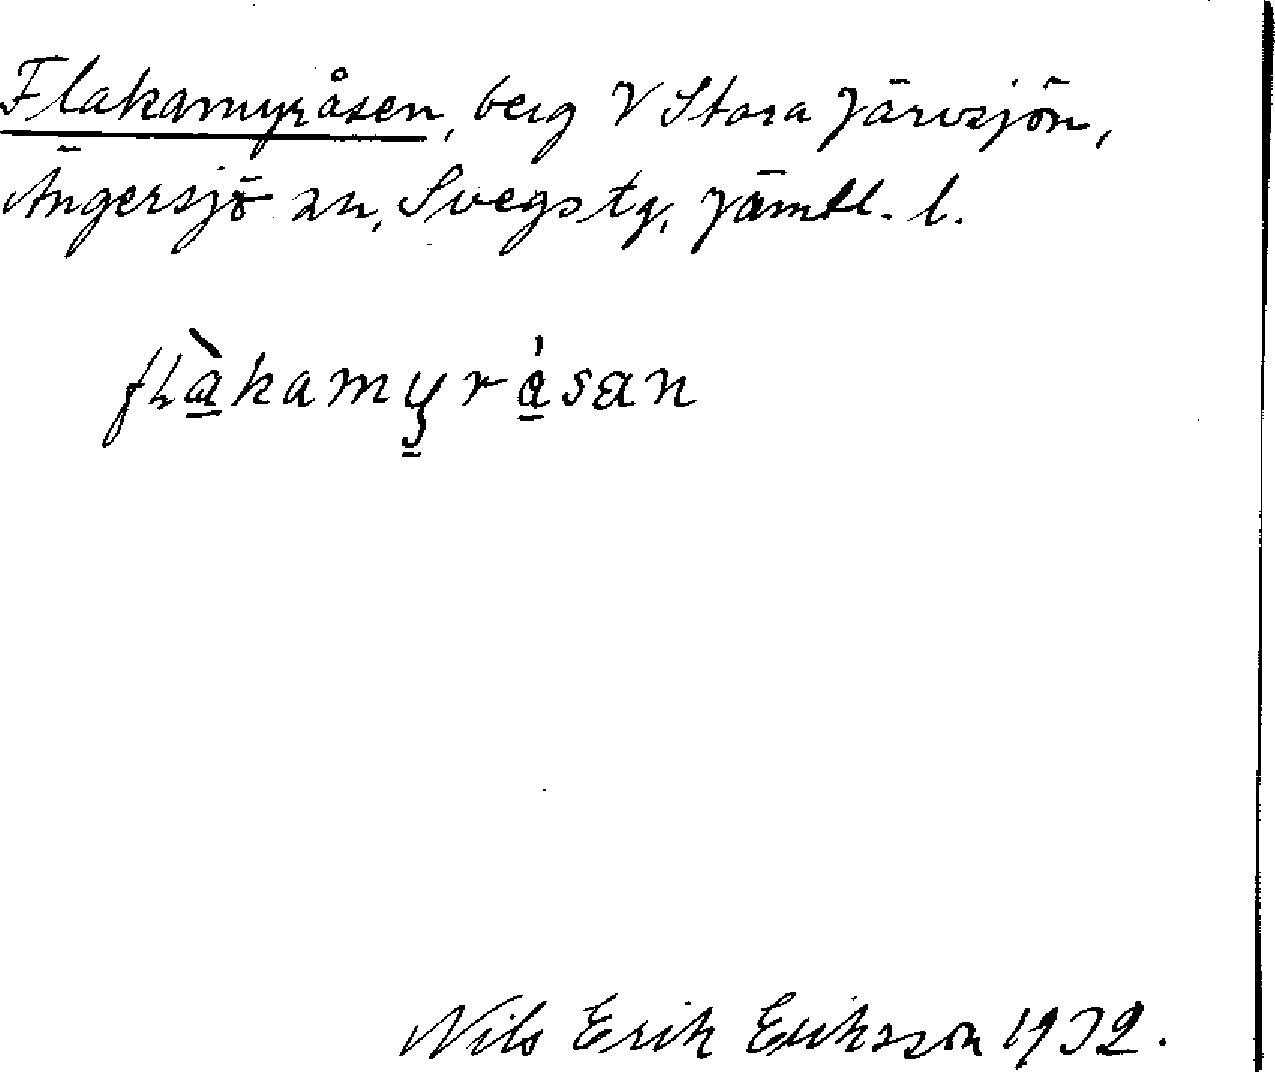 Flakamyråsen, berg V Stora Järvsjön,
Ängersjö sn, Svegs tg, Jämtl. l.
flàkamyrásan
Nils Erik Eriksson 1932.